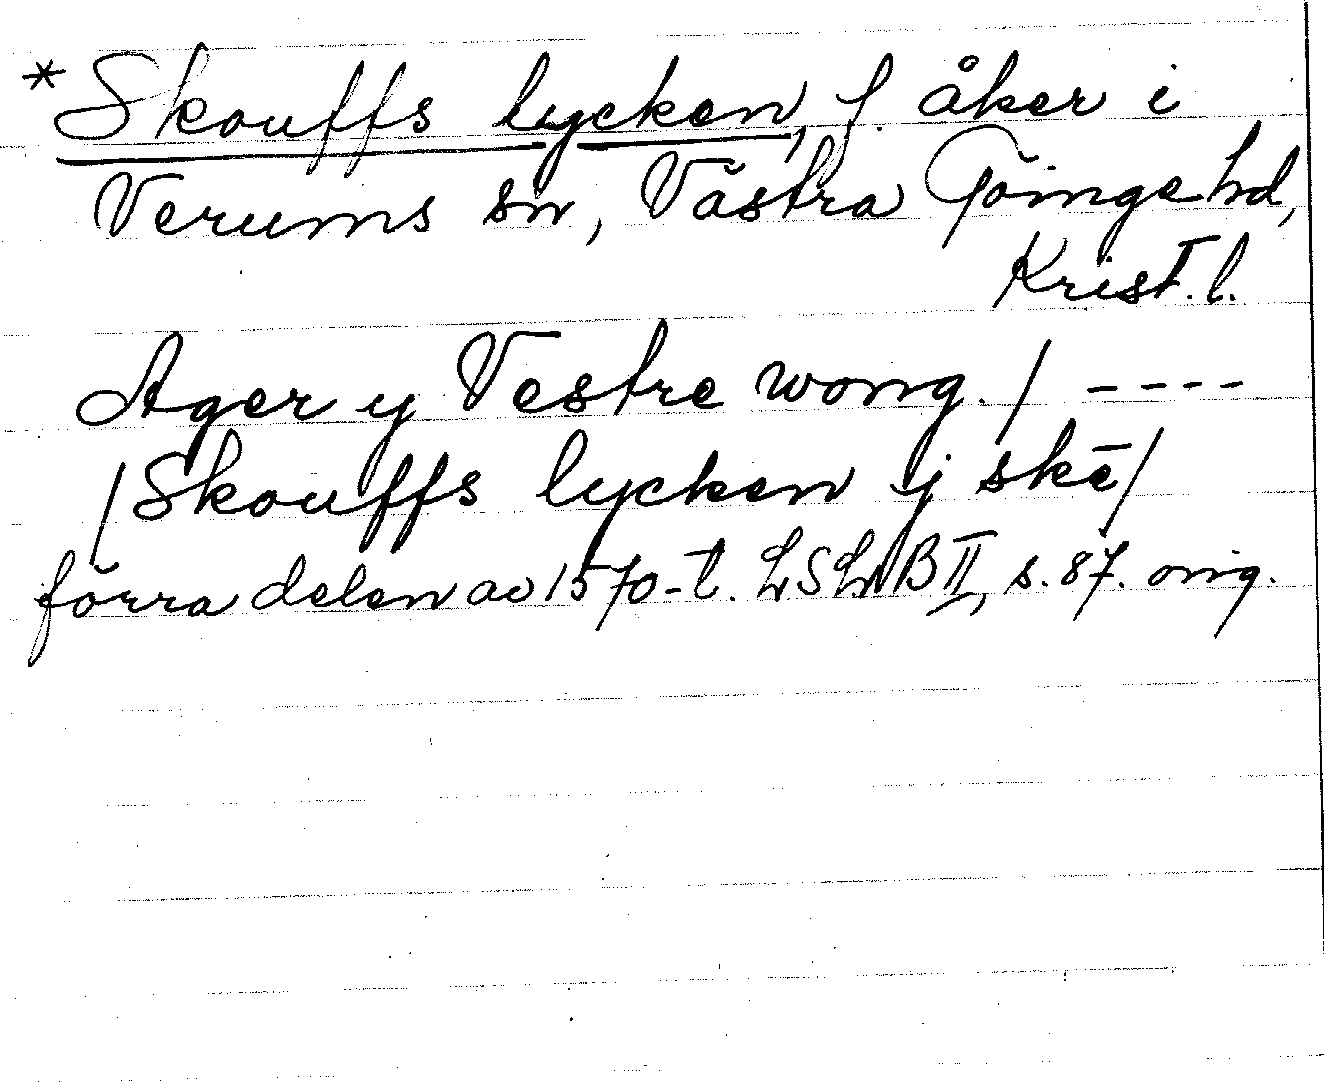 *Skouffs lycken, f. åker i
Verums sn, Västra Göinge hd,
Krist. l.
Ager y Vestre wong. / ----
/Skouffs lycken ÿ skē/
förra delen av 1570-t. LSLNB II, s. 87. orig.